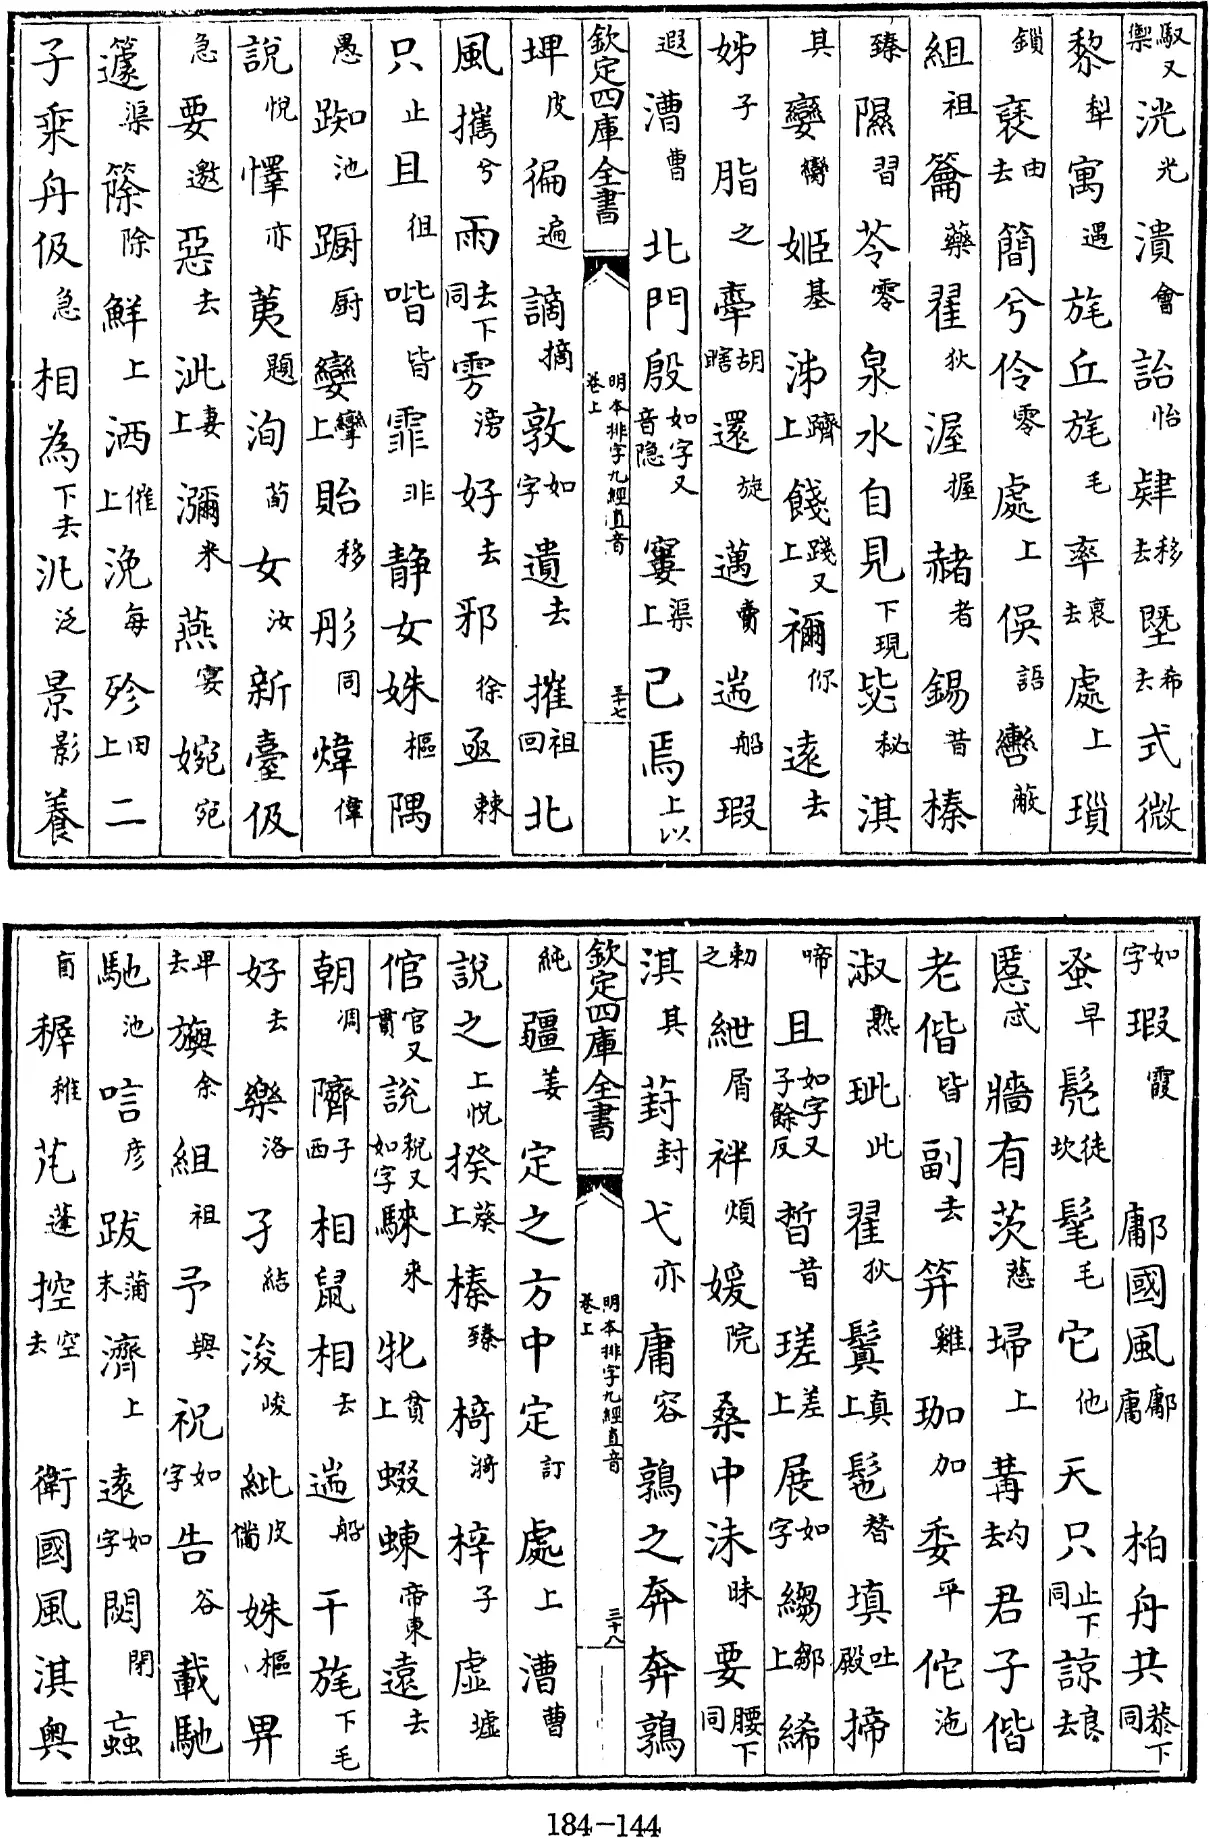 馭又禦洸光潰會詒怡肄移去塈希去式微
黎犁寓遇旄丘旄毛率衰去處上瑣
鎖褎由去簡兮伶零處上俁語轡蔽
組祖籥藥翟狄渥握赭者錫昔榛
臻隰習苓零泉水自見下現毖秘淇
其孌臠姬基泲躋上餞踐又上禰你遠去
姊子脂之舝胡瞎還旋邁賣遄船瑕
遐漕曹北門殷如字又音隐窶渠上已焉上以
欽定四庫全書 明本排字九經直音 卷上 三十七
埤皮徧遍謫摘敦如字遺去摧祖回北
風攜兮雨去下同雱滂好去邪徐亟棘
只止且徂喈皆霏非静女姝樞隅
愚踟池蹰厨孌臠上貽移彤同煒偉
說悅懌亦荑題洵荀女汝新臺伋
急要邀惡去泚妻上瀰米燕宴婉宛
籧渠篨除鮮上洒催上浼每殄田上二
子乘舟伋急相為下去汎泛景影養
如字瑕霞 鄘國風鄘庸 柏舟共恭下同
蚤早髧徒坎髦毛它他天只止下同諒良去
慝忒牆有茨慈埽上冓勾去君子偕
老偕皆副去笄雞珈加委平佗沱
淑熟玼此翟狄鬒真上髢替填吐殿揥
啼且如字又子餘反晳昔瑳差上展如字縐鄒上絺
勅之紲屑袢煩媛院桑中沬昧要腰下同
淇其葑封弋亦庸容鶉之奔奔鶉
欽定四庫全書 明本排字九經直音 卷上 三十八
純疆姜定之方中定訂處上漕曹
說之上悅揆葵上榛臻椅漪梓子虛墟
倌官又貫說稅又如字騋来牝貧上蝃蝀帝東遠去
朝凋隮子西相鼠相去遄船干旄下毛
好去樂洛孑結浚峻紕皮備姝樞畀
畢去旟余組祖予與祝如字告谷載馳
馳池唁彦跋蒲末濟上遠如字閟閉蝱
盲穉稚芃蓬控空去 衛國風淇奧
184-144